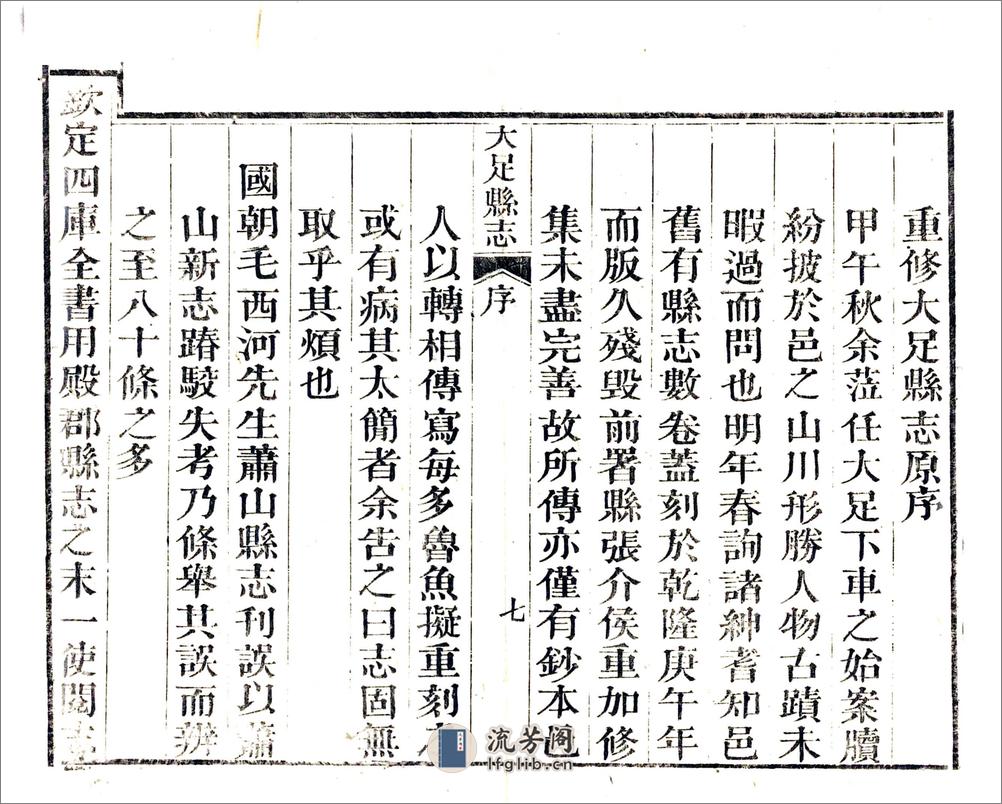 重修大足縣志原序
甲午秋余蒞任大足下車之始案牘
紛披於邑之山川形勝人物古蹟未
暇過而問也明年春詢諸紳耆知邑
舊有縣志數卷蓋刻於乾隆庚午年
而版久殘毀前署縣張介侯重加修
集未盡完善故所傳亦僅有鈔本邑
大足縣志 序 七
人以轉相傳寫每多魯魚擬重刻
或有病其太簡者余告之曰志固無
取乎其煩也
國朝毛西河先生蕭山縣志刊誤以蕭
山新志踳駮失考乃條舉其誤而辨
之至八十條之多
欽定四庫全書用殿郡縣志之末一使閱志
流芳阁
lfglib.cn